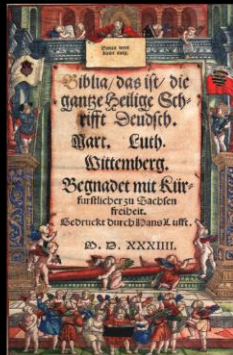 Biblia / das ist / die
gantze Heilige Sch-
rifft Deudsch.
Mart. Luth.
Wittemberg.
Begnadet mit Kür-
furstlicher zu Sachsen
freiheit.
Gedruckt durch Hans Lufft.
M. D. XXXIIII.